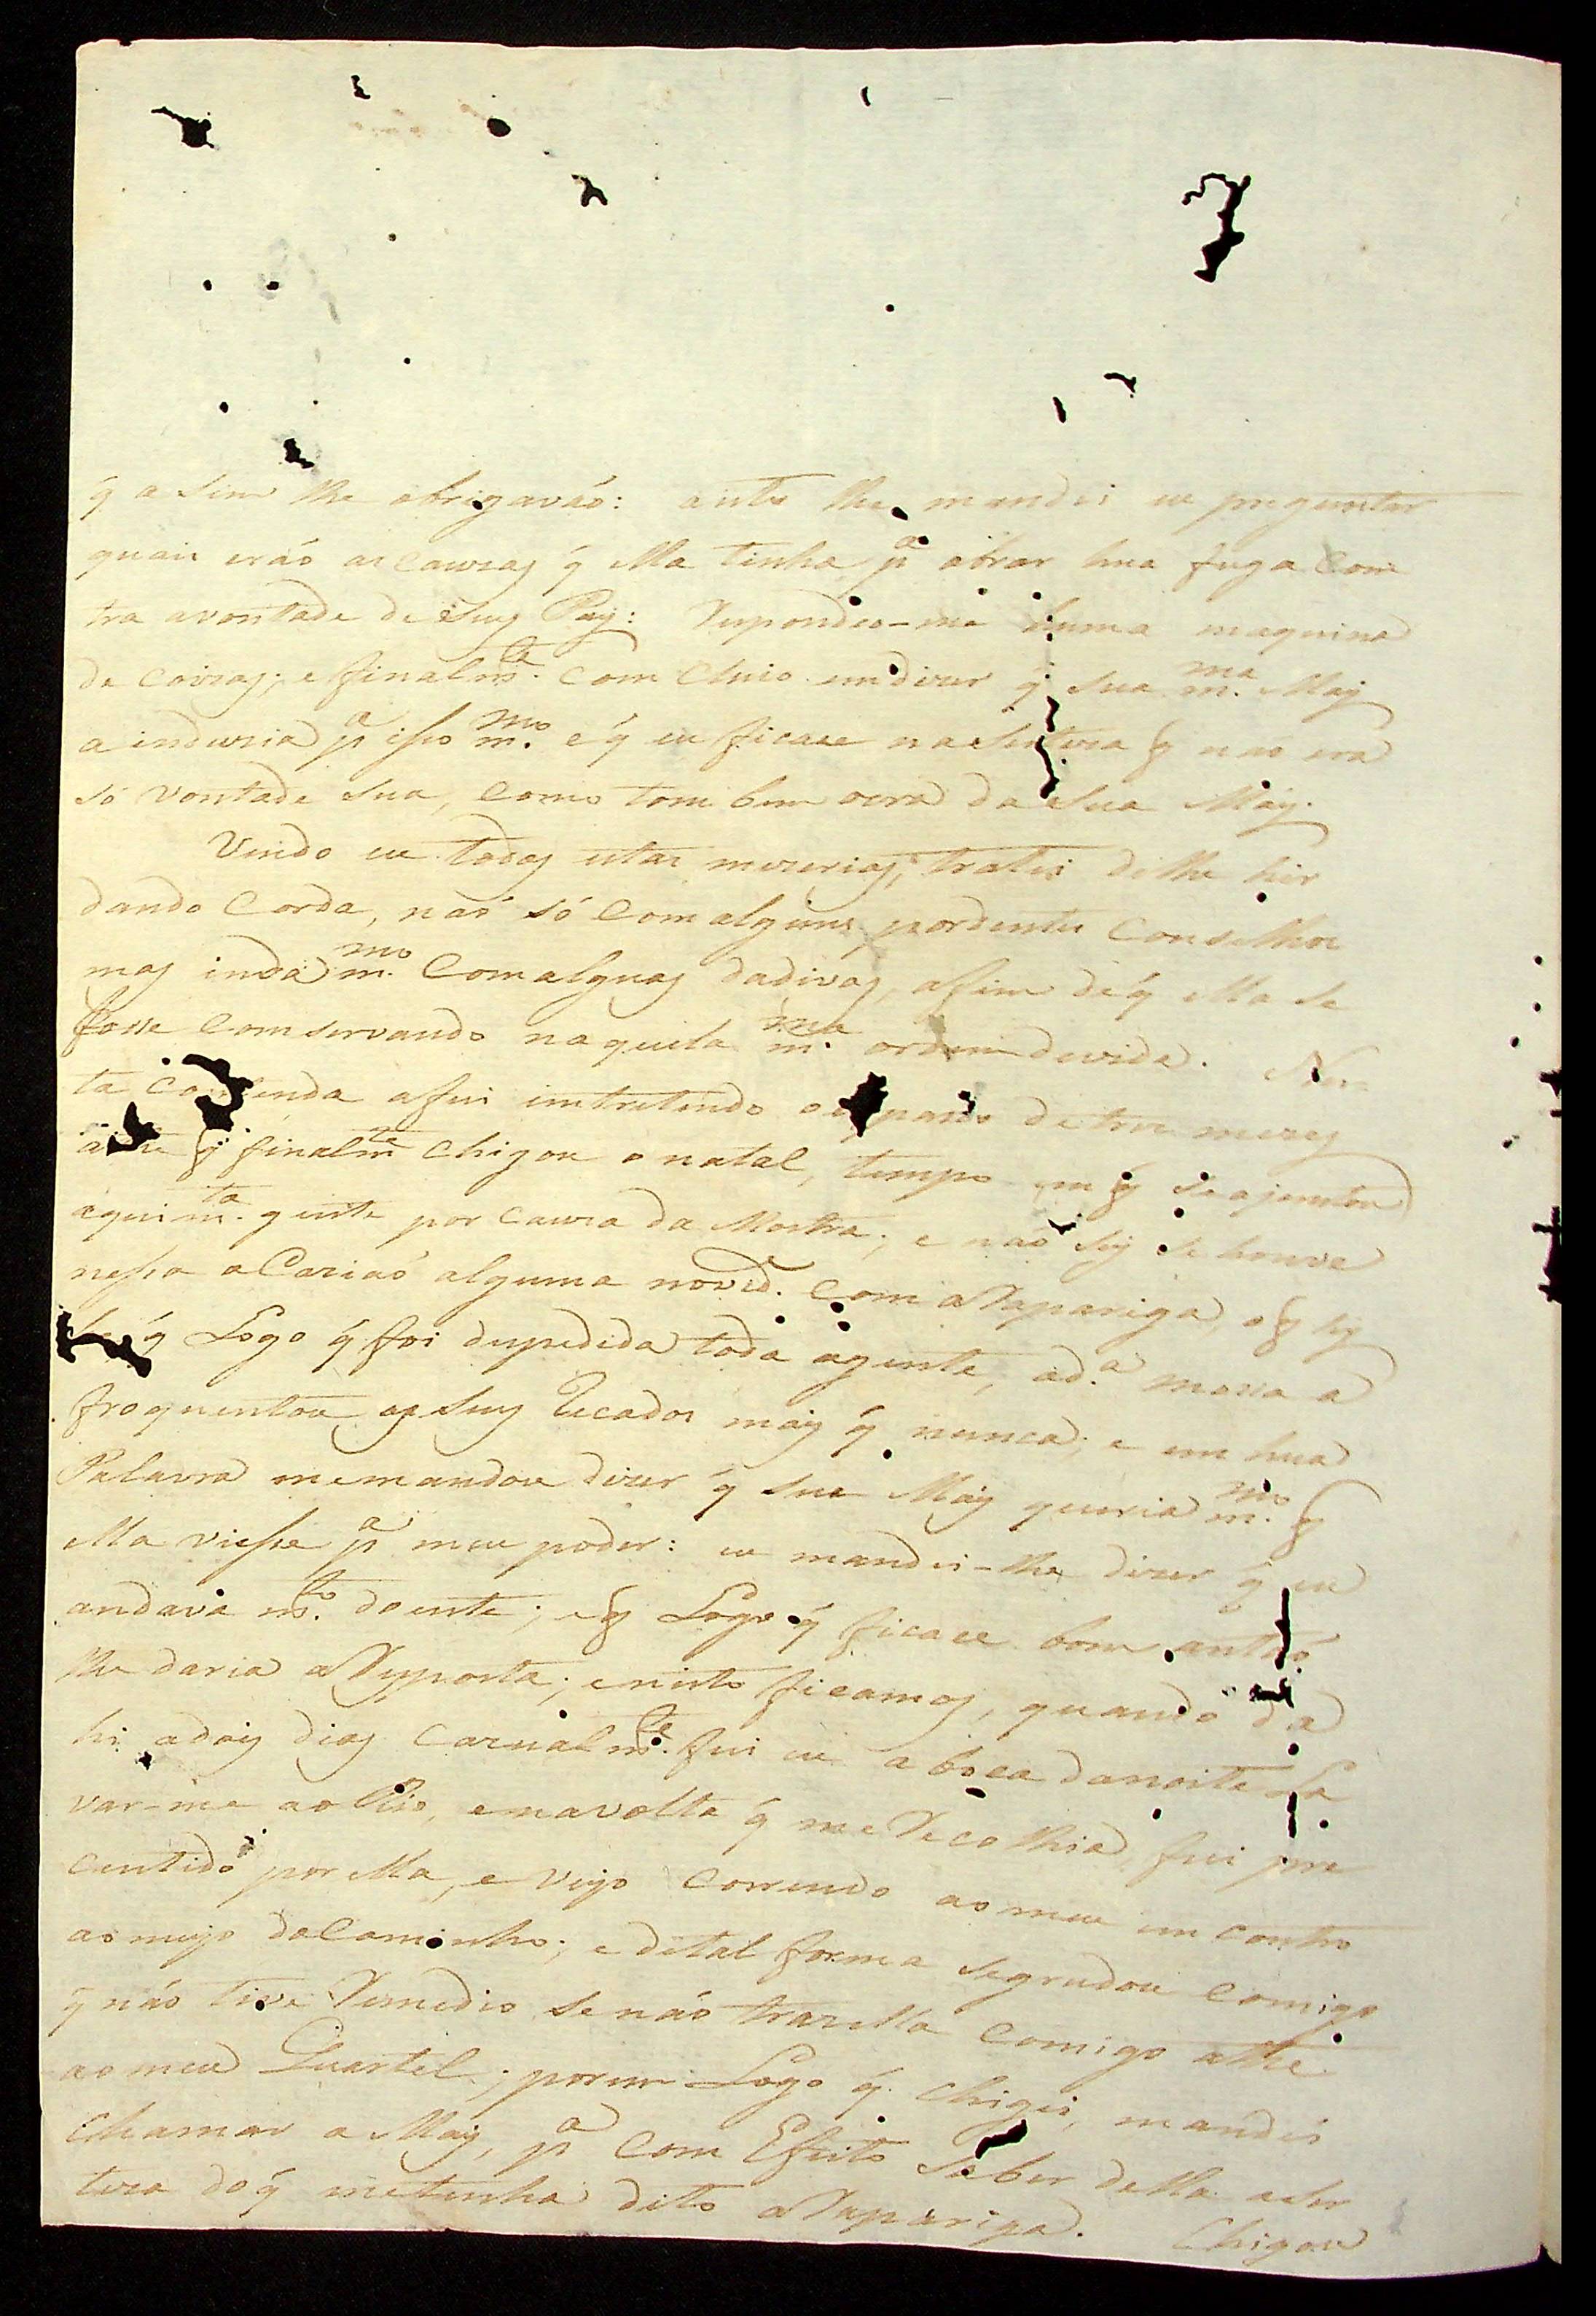 q̃ a sim lhe obrigavaó: a isto lhe mandei eu preguntar
quais eraó as cauzas q̃ ella tinha p.ª obrar hua fuga com
tra avontade de seus Pay: Respondeo-me huma maquina
de coizas; e finalm.te com cluio em dizer q̃ sua m.ma May
a induzia p.ª isso m.mo e q̃ eu ficace na serteza q̃ naó era
só vontade sua, como tom bem oera da sua Máy.
Vendo eu todas estas mizerias, tratei delhe hir
dando Corda, naó só com alguns pordentes Conselhos
mas inda m.mo Com algũas dadivas, afim de q̃ ella se
fosse Comservando naquela m.ma ordem devida. Nes
ta Contenda afui imtretendo o espaso de tres mezes
athe q̃ finalm.te chigou o natal, tempo em q̃ se ajuntou
aqui m.ta gente por cauza da Mostra; e naó sey se houve
nessa oCaziaó alguma noved.e Com aRapariga, o q̃ sey
he q̃ Logo q̃ foi despedida toda agente, ad.ª mossa a
froquentou os seus Recados máis q̃ nunca; e em hua
Palavra memandou dizer q̃ sua Máy queria m.mo q̃
ella viesse p.ª meu poder: eu mandei-lhe dizer q̃ eu
andava m.to doente; e q̃ Logo q̃ ficace bom antaó
lhe daria aResposta; e nisto ficamos, quando da
hi adois dias Cazualm.te fui eu a boca danoite La
var-me ao Rio, enavolta q̃ me Recolhia, fui pre
centido por ella, e veyo Correndo ao meu em contro
ao meyo doCaminho; e detal forma segrudou Comigo
q̃ náo tive Remedio se náo trazella Comigo athe
ao meu Quartel; porem Logo q̃ chigei, mandei
chamar a May, p.ª Com Efeito saber della aser
teza do q̃ metinha dito aRapariga. Chigou